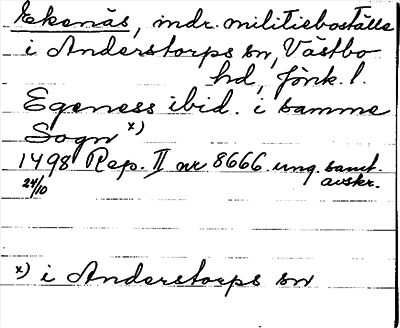 Ekenäs, mdr. militieboställe
i Anderstorps sn, Västbo
hd, Jönk. l.
Egeness ibid. i samme
Sogn x)
1498 Rep. II nr 8666. ung. samt.
24/10 avskr.
x) i Anderstorps sn